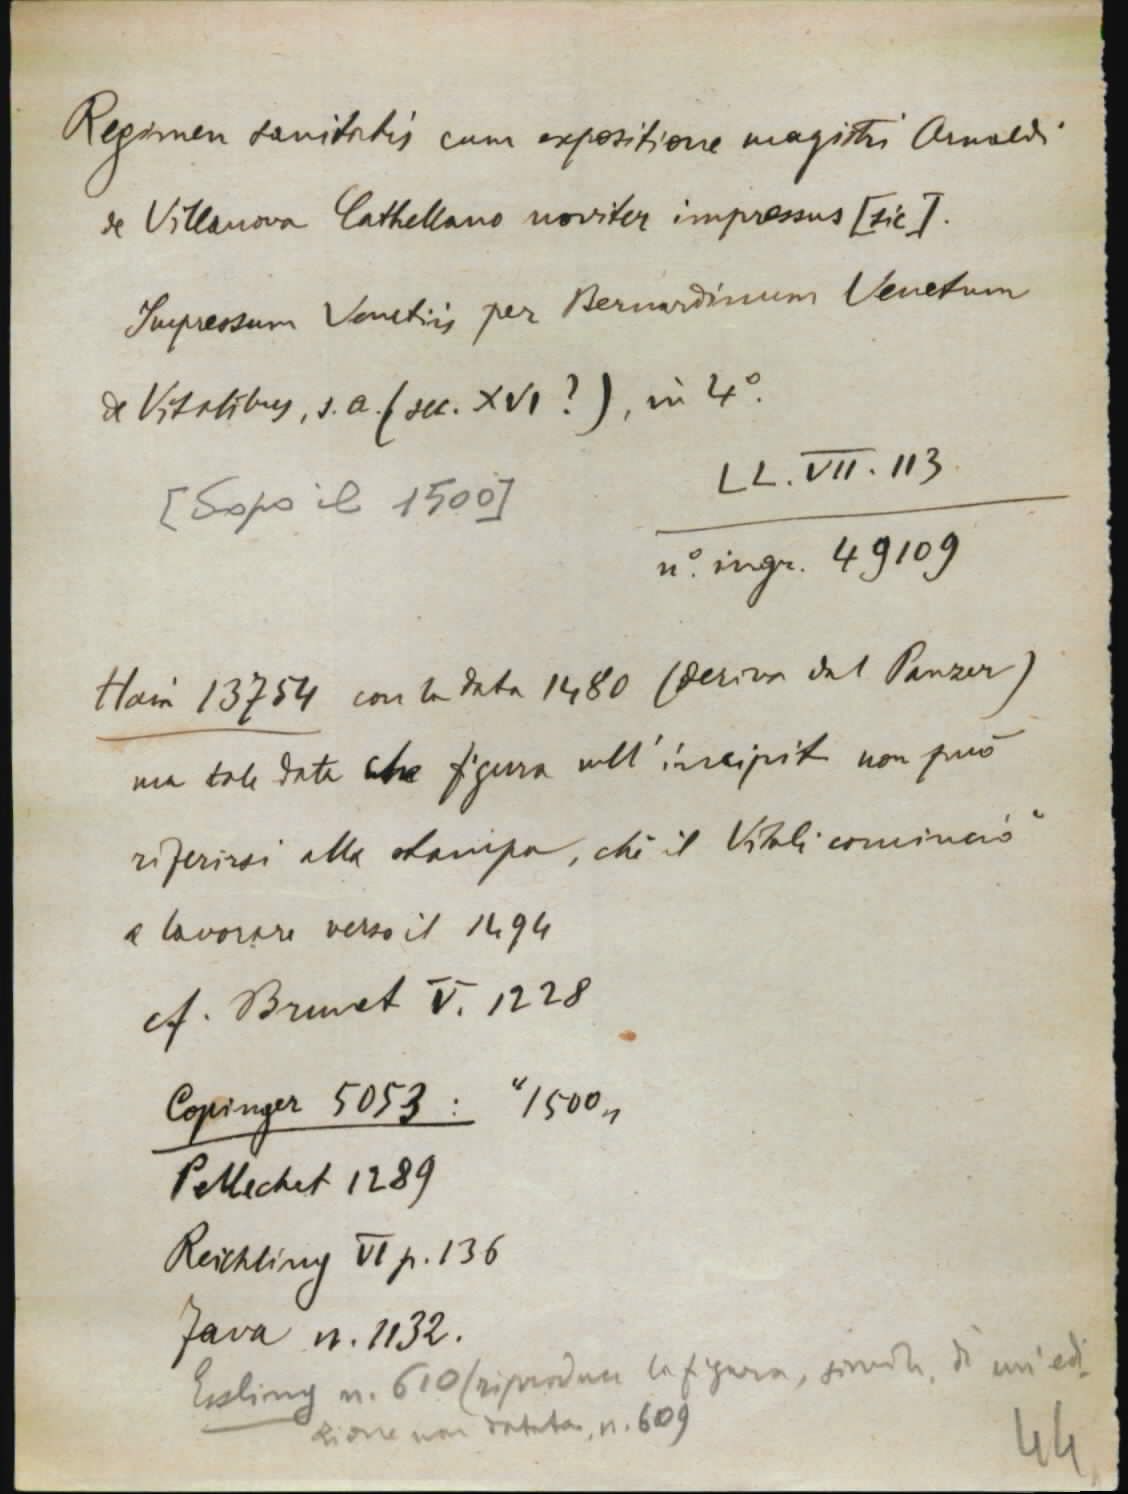 Regimen sanitatis cum expositione magistri Arnaldi
de Villanova Cathellano noviter impressus [sic].
Impressum Venetiis per Bernardinum Venetum
de Vitalibus, s. a. (sec. XVI?), in 4°.
[Dopo il 1500]
LL. VII. 113
n°. ingr. 49109
Hain 13754 con la data 1480 (deriva dal Panzer)
ma tale data che figura nell'incipit non può
riferirsi alla stampa, chè il Vitali cominciò
a lavorare verso il 1494
cf. Brunet V. 1228
Copinger 5053 : "1500"
Pellechet 1289
Reichling VI p. 136
Fava n. 1132.
Essling n. 610 (riproduce la figura, simile, di un'edi-
zione non datata, n. 609
44